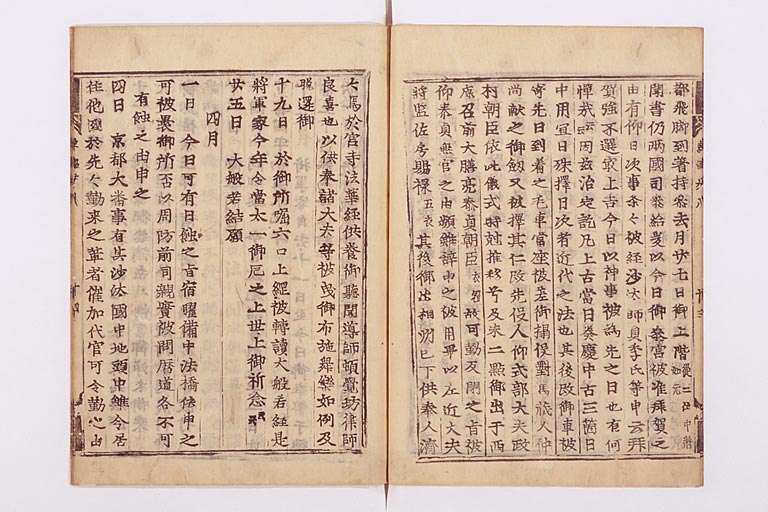 都飛脚到著持參去月廿七日御上階從二位
聞書仍兩國司參給爰以今日御參宮被准拜賀之
由有仰日次事条々被經沙汰師員李氏等申云拜
賀強不選歟上古今日以神事被為先之日也有何
憚哉云云因茲治定訖凡上古當日奏慶中古三箇日
中用宜日殊擇日次者近代之法也其後改御車被
寄先日到着之毛車當座被垂御榻役對馬藏人仲
尚献之御劔又被擇其仁改先役人仰式部大夫政
村朝臣依此儀式時尅推移兮及未二點御出于西
庭召前大膳亮泰貞朝臣故可勤反閇之旨被
仰泰貞無官之由頻雖辞申之被用畢以左近大夫
時監佐房賜祿五衣其後御出相州已下供奉人濟
大馬於官寺法華經供養御聽聞導師頓覺坊律師
良喜也以供奉諸大夫等被曳御布施舞樂如例及
晩還御
十九日 於御所啒六口上經被轉讀大般若經是
將軍家今年令當太一御厄之上世上御祈念云云
廿五日 大般若結願
四月
一日 今日可有日蝕之旨宿曜備中法橋申之
可被裹御所否以周防前司親實被問暦道各不可
有蝕之由申之
四日 京都大番事有其沙汰國中地頭中雖令居
住他國於先々勤來之輩者催加代官可令勤仕由